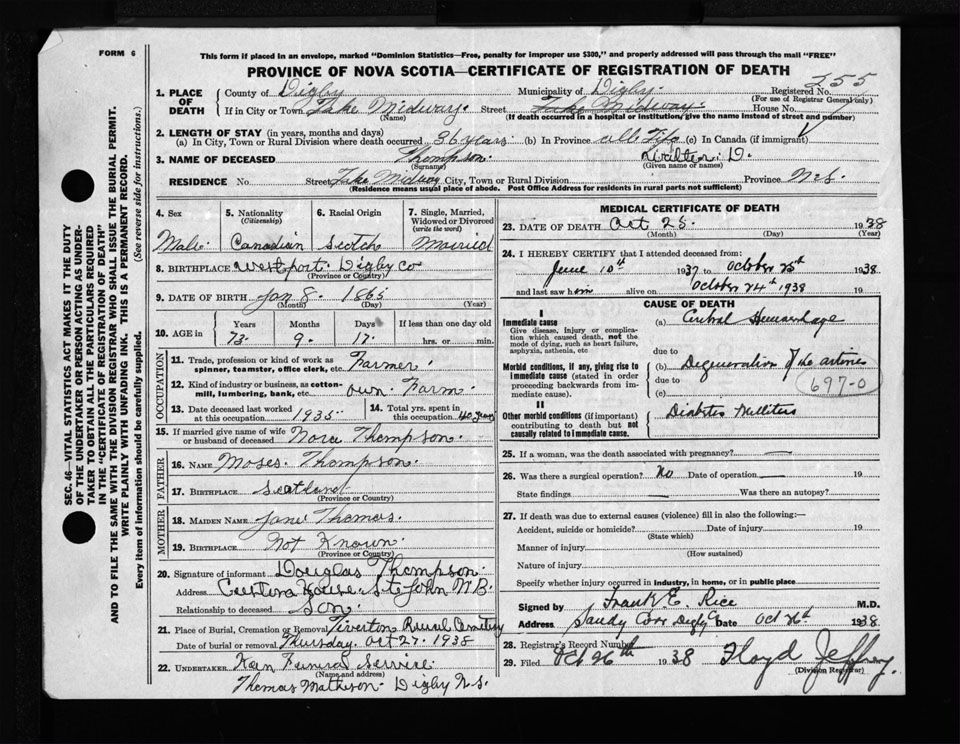 FORM 6
This form if placed in an envelope, marked "Dominion Statistics—Free, penalty for improper use $300," and properly addressed will pass through the mail "FREE"
PROVINCE OF NOVA SCOTIA—CERTIFICATE OF REGISTRATION OF DEATH
SEC. 46—VITAL STATISTICS ACT MAKES IT THE DUTY
OF THE UNDERTAKER OR PERSON ACTING AS UNDER-
TAKER TO OBTAIN ALL THE PARTICULARS REQUIRED
IN THE "CERTIFICATE OF REGISTRATION OF DEATH"
AND TO FILE THE SAME WITH THE DIVISION REGISTRAR WHO SHALL ISSUE THE BURIAL PERMIT.
WRITE PLAINLY WITH UNFADING INK. THIS IS A PERMANENT RECORD.
Every item of information should be carefully supplied. (See reverse side for instructions.)
1. PLACE OF DEATH County of Digby Municipality of Digby Registered No. 255
(For use of Registrar General only)
If in City or Town Lake Midway. Street Lake Midway. House No.
(Name) (If death occurred in a hospital or institution, give the name instead of street and number)
2. LENGTH OF STAY (in years, months and days)
(a) In City, Town or Rural Division where death occurred 36 years (b) In Province all Life (c) In Canada (if immigrant)
3. NAME OF DECEASED Thompson. D.
(Surname) (Given name or names)
RESIDENCE No Street Lake Midway City, Town or Rural Division Province N.S.
(Residence means usual place of abode. Post Office Address for residents in rural parts not sufficient)
4. Sex 5. Nationality (Citizenship) 6. Racial Origin 7. Single, Married, Widowed or Divorced (write the word)
Male. Canadian Scotch Married
8. BIRTHPLACE Westport. Digby Co
(Province or Country)
9. DATE OF BIRTH Jan 8. 1865
(Month) (Day) (Year)
10. AGE in Years Months Days If less than one day old
73. 9. 17. hrs. or min.
OCCUPATION
11. Trade, profession or kind of work as spinner, teamster, office clerk, etc. Farmer.
12. Kind of industry or business, as cotton-mill, lumbering, bank, etc. own Farm
13. Date deceased last worked at this occupation 1935 14. Total yrs. spent in this occupation 40 years
15. If married give name of wife or husband of deceased Nora Thompson.
FATHER
16. NAME Moses. Thompson.
17. BIRTHPLACE Scotland
(Province or Country)
MOTHER
18. MAIDEN NAME Jane Thomas.
19. BIRTHPLACE Not Known.
(Province or Country)
20. Signature of informant Douglas Thompson.
Address House. St. John N.B.
Relationship to deceased Son.
21. Place of Burial, Cremation or Removal Tiverton Rural Cemetery
Date of burial or removal Thursday. Oct 27. 1938
22. UNDERTAKER Funeral Service.
(Name and address)
Thomas Matheson. Digby N.S.
MEDICAL CERTIFICATE OF DEATH
23. DATE OF DEATH Oct 25. 1938
(Month) (Day) (Year)
24. I HEREBY CERTIFY that I attended deceased from:
June 10th 1937 to October 25th 1938
and last saw him alive on October 24th 1938 19
CAUSE OF DEATH
I
Immediate cause
Give disease, injury or complication which caused death, not the mode of dying, such as heart failure, asphyxia, asthenia, etc
(a) Hemorrhage
due to
Morbid conditions, if any, giving rise to immediate cause (stated in order proceeding backwards from immediate cause).
(b) Degeneration of the arteries
due to
697-0
(c)
II
Other morbid conditions (if important) contributing to death but not causally related to immediate cause.
Diabetes Mellitus
25. If a woman, was the death associated with pregnancy? —
26. Was there a surgical operation? No Date of operation — 19
State findings — Was there an autopsy?
27. If death was due to external causes (violence) fill in also the following:—
Accident, suicide or homicide? Date of injury 19
(State which)
Manner of injury
(How sustained)
Nature of injury
Specify whether injury occurred in industry, in home, or in public place
Signed by Frank E. Rice M.D.
Address Sandy Cove Digby Co Date Oct 26th 1938
28. Registrar's Record Number
29. Filed Oct 26th 1938 Floyd Jeffrey.
(Division Registrar)